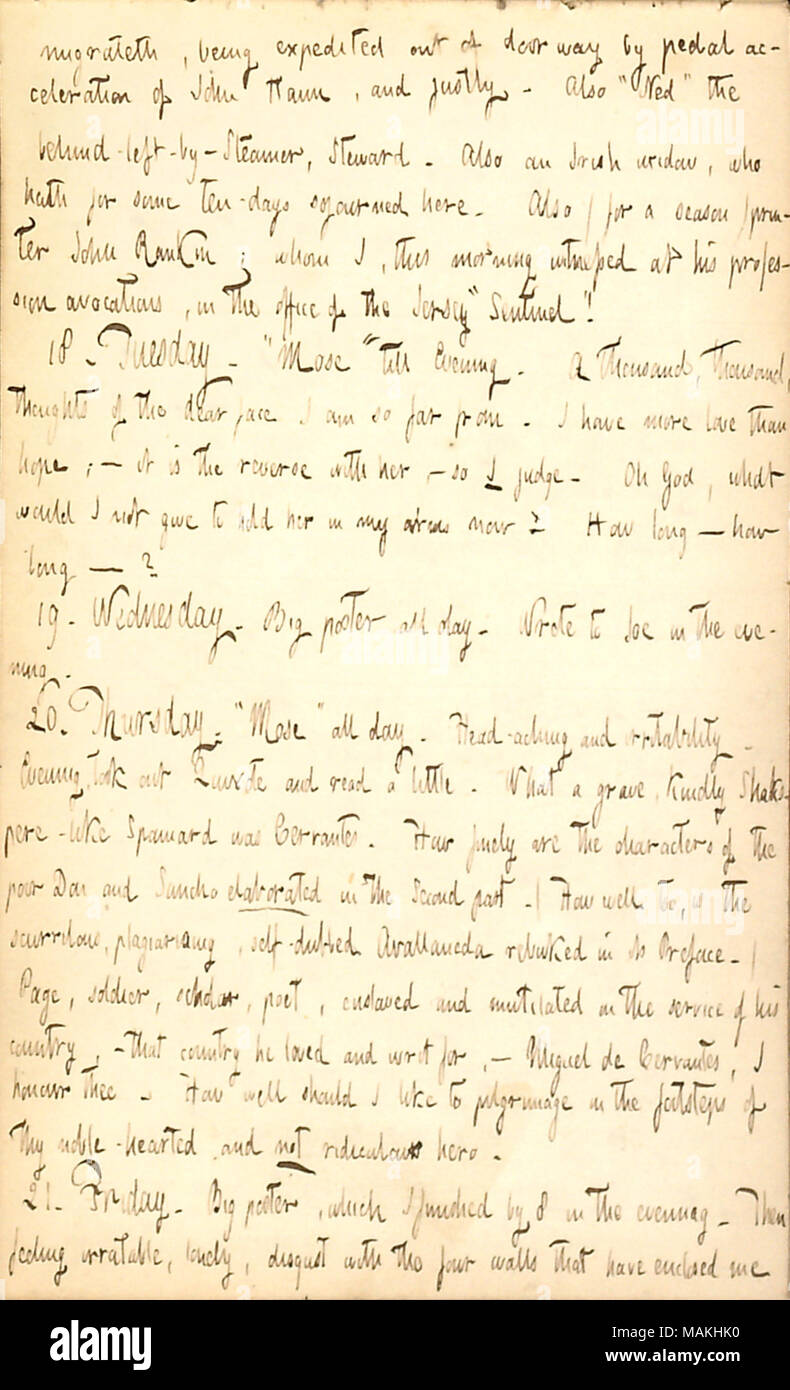 migrateth, being expedited out of doorway by pedal ac-
celeration of John Hann, and justly. Also "Ned" the
behind-left-by-Steamer, Steward. Also an Irish widow, who
hath for some ten-days sojourned here. Also (for a season) prin-
ter John Rankin; whom I, this morning witnessed at his profes-
sion avocations, in the office of the Jersey "Sentinel"!
18. Tuesday. "Mose" till Evening. A thousand, thousand,
thoughts of the dear face I am so far from. I have more love than
hope; — it is the reverse with her, — so I judge. Oh God, what
would I not give to hold her in my arms now? How long — how
long — ?
19. Wednesday. Big poster all day. Wrote to Joe in the eve-
ning.
20. Thursday. "Mose" all day. Head-aching and irritability.
Evening, took out Quixote and read a little. What a grave, kindly Shaks-
pere-like Spaniard was Cervantes. How finely are the characters of the
poor Don and Sancho elaborated in the Second part. (How well too, is the
scurrilous, plagiarising, self-dubbed Avallaneda rebuked in its Preface.)
Page, soldier, scholar, poet, enslaved and mutilated in the service of his
country, — that country he loved and writ for, — Miguel de Cervantes, I
honour thee. How well should I like to pilgrimage in the footsteps of
thy noble-hearted and not ridiculous hero.
21. Friday. Big poster, which I finished by 8 in the evening. Then
feeling irratable, lonely, disgust with the four walls that have enclosed me
alamy
Image ID: MAKHK0
www.alamy.com